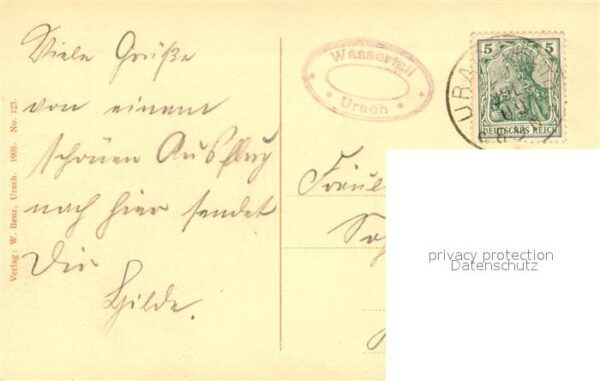 Viele Grüße
von einem
schönen Ausflug
nach hier sendet
Dir
Hilde.
Verlag: W. Benz, Urach. 1909. No. 127.
Wasserfall
Urach
5
5
DEUTSCHES REICH
URA
Fräul
privacy protection
Datenschutz